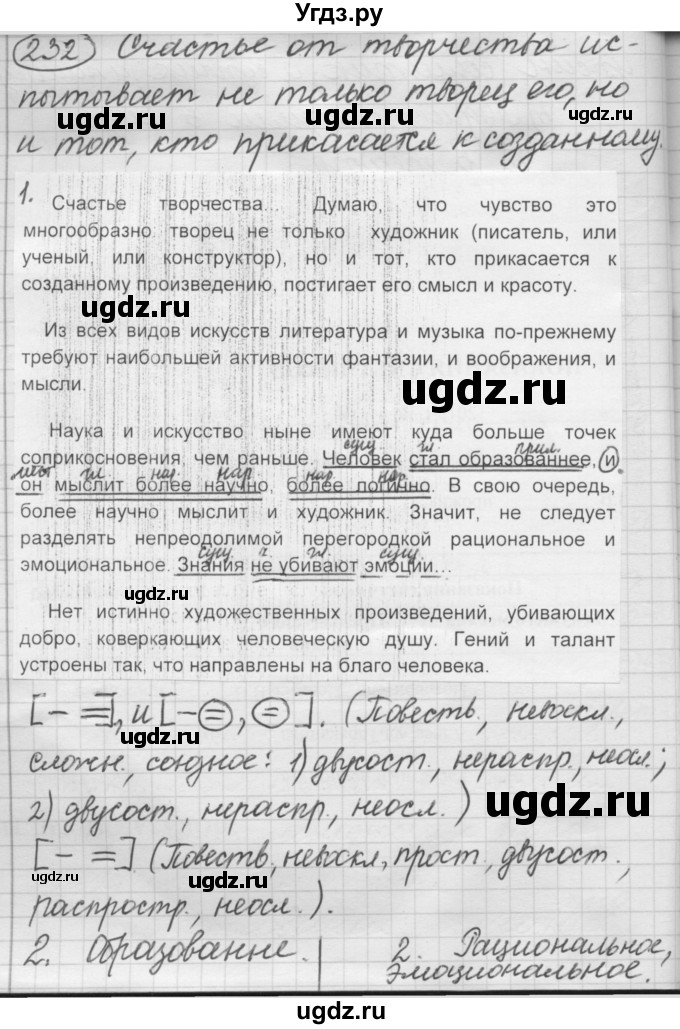 Угдз.ру
232 Счастье от творчества ис-
пытывает не только творец его, но
ugdz.ru ugdz.ru
и тот, кто прикасается к созданному.
1. Счастье творчества... Думаю, что чувство это
многообразно творец не только художник (писатель, или
ученый, или конструктор), но и тот, кто прикасается к
созданному произведению, постигает его смысл и красоту.
ugdz.ru
Из всех видов искусств литература и музыка по-прежнему
требуют наибольшей активности фантазии, и воображения, и
мысли.
ugdz.ru
Наука и искусство ныне имеют куда больше точек
сущ. гл. прил.
соприкосновения, чем раньше. Человек стал образованнее, и
мест. гл. нар. нар. нар. нар.
он мыслит более научно, более логично. В свою очередь,
ugdz.ru ugdz.ru
более научно мыслит и художник. Значит, не следует
разделять непреодолимой перегородкой рациональное и
сущ. ч. гл. сущ.
эмоциональное. Знания не убивают эмоции...
ugdz.ru
Нет истинно художественных произведений, убивающих
добро, коверкающих человеческую душу. Гений и талант
устроены так, что направлены на благо человека.
[– =], и [– =, =]. (Повесть, невоскл.,
ugdz.ru
сложн., союзное: 1) двусост., нераспр., неосл.;
2) двусост., нераспр., неосл.)
ugdz.ru
[– =] (Повеств, невоскл, прост, двусост.,
ugdz.ru ugdz.ru
распростр., неосл.).
2. Образованне.
2. Рациональное,
эмоциональное.
ugdz.ru ugdz.ru
ugdz.ru